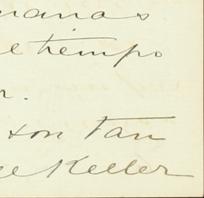 manas
e tiempo
r.
son tan
e Keller